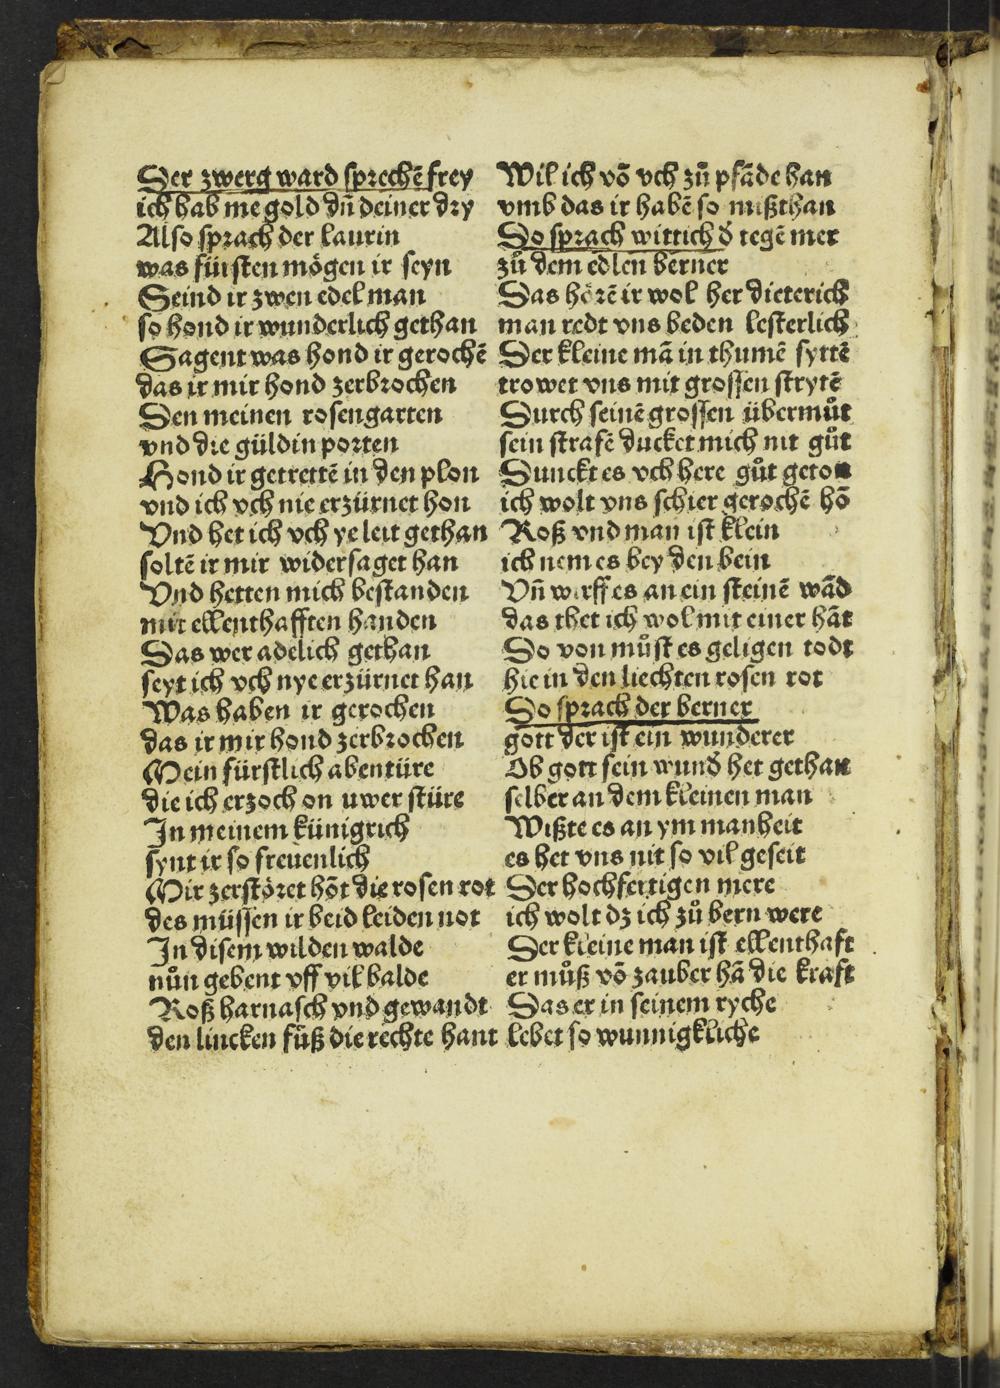 Der zwerg ward sprechē frey
ich hab me gold dñ deiner dry
Also sprach der laurin
was fürsten mögen ir seyn
Seind ir zwen edel man
so hond ir wunderlich gethan
Sagent was hond ir gerochē
das ir mir hond zerbrochen
Den meinen rosengarten
vnd die güldin porten
Hond ir getrettē in den plon
vnd ich vch nie erzürnet hon
Vnd het ich vch ye leit gethan
soltē ir mir widersaget han
Vnd hetten mich bestanden
mit ellenthafften handen
Das wer adelich gethan
seyt ich vch nye erzürnet han
Was haben ir gerochen
das ir mir hond zerbrochen
Mein fürstlich abentüre
die ich erzoch on uwer stüre
In meinem künigrich
synt ir so freuenlich
Mir zerstöret hōt die rosen rot
des müssen ir beid leiden not
In disem wilden walde
nůn gebent vff vil balde
Roß harnasch vnd gewandt
den lincken fůß die rechte hant
Wil ich vō vch zů pfāde han
vmb das ir habē so mißthan
So sprach wittich d̄ tegē mer
zů dem edlen berner
Das hörē ir wol her dieterich
man redt vns beden lesterlich
Der kleine mā in thumē syttē
trowet vns mit grossen strytē
Durch seinē grossen übermůt
sein strafē ducket mich nit gůt
Dunckt es vch here gůt geton
ich wolt vns schier gerochē hō
Roß vnd man ist klein
ich nem es bey den bein
Vñ wirff es an ein steinē wād
das thet ich wol mit einer hāt
Do von můst es geligen todt
hie in den liechten rosen rot
So sprach der berner
gott der ist ein wunderer
Ob gott sein wund̄ het gethan
selber an dem kleinen man
Wißte es an ym manheit
es het vns nit so vil geseit
Der hochfertigen mere
ich wolt dz ich zů bern were
Der kleine man ist ellenthaft
er můß vō zauber hā die kraft
Das er in seinem ryche
lebet so wunnigkliche